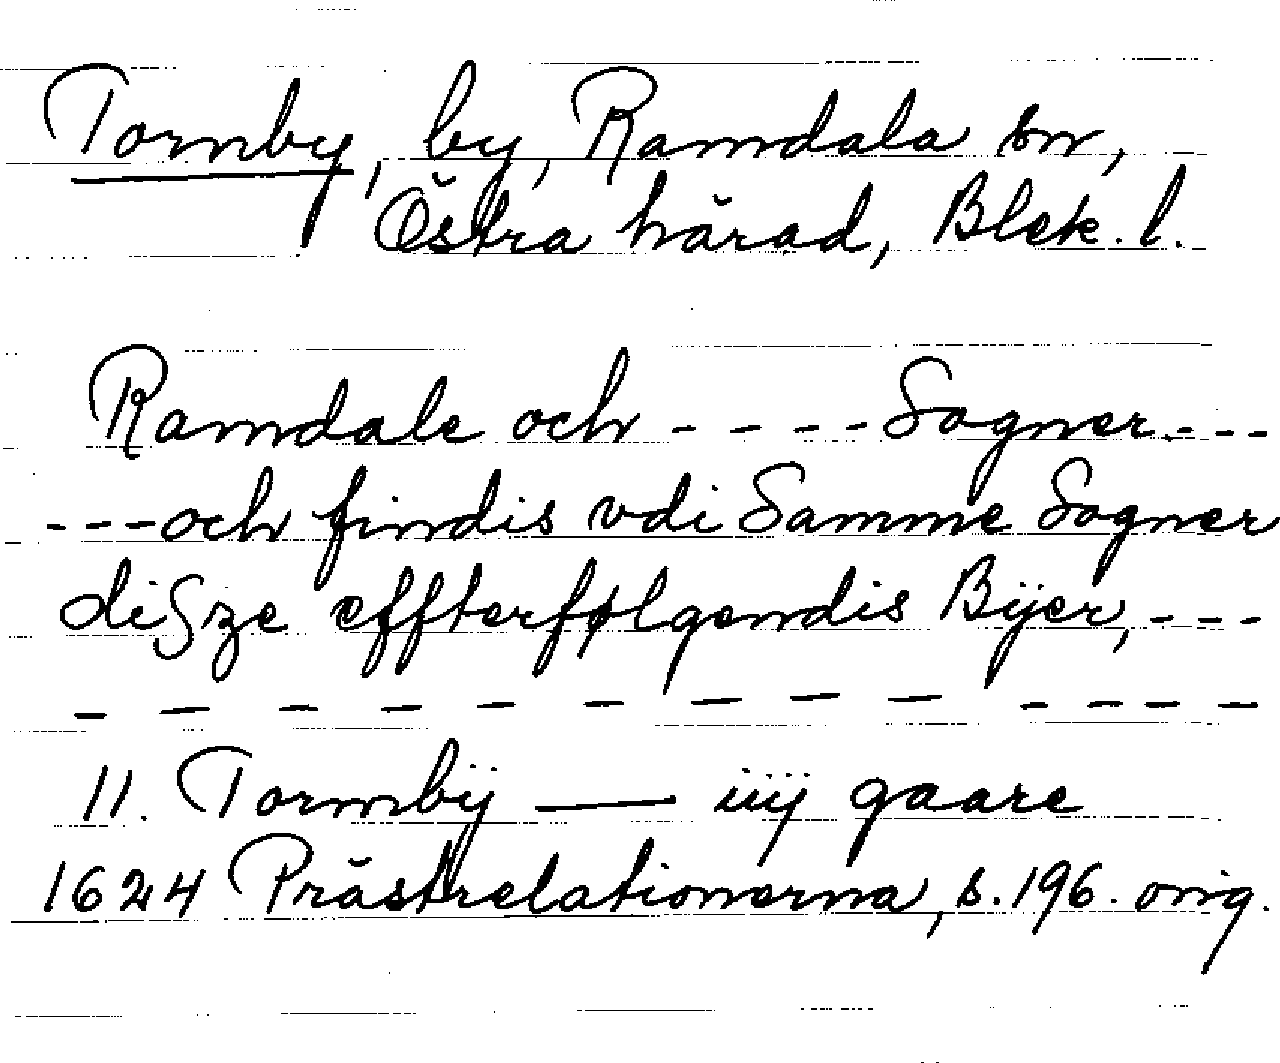 Tornby, by, Ramdala sn,
Östra härad, Blek. l.
Ramdale och - - - - Sogner. - - -
- - - och findis vdi Samme Sogner
diSze effterfølgendis Bÿer, - - -
- - - - - - - - - - - - -
11. Tormbÿ — iiij gaare
1624 Prästrelationerna, s. 196. orig.